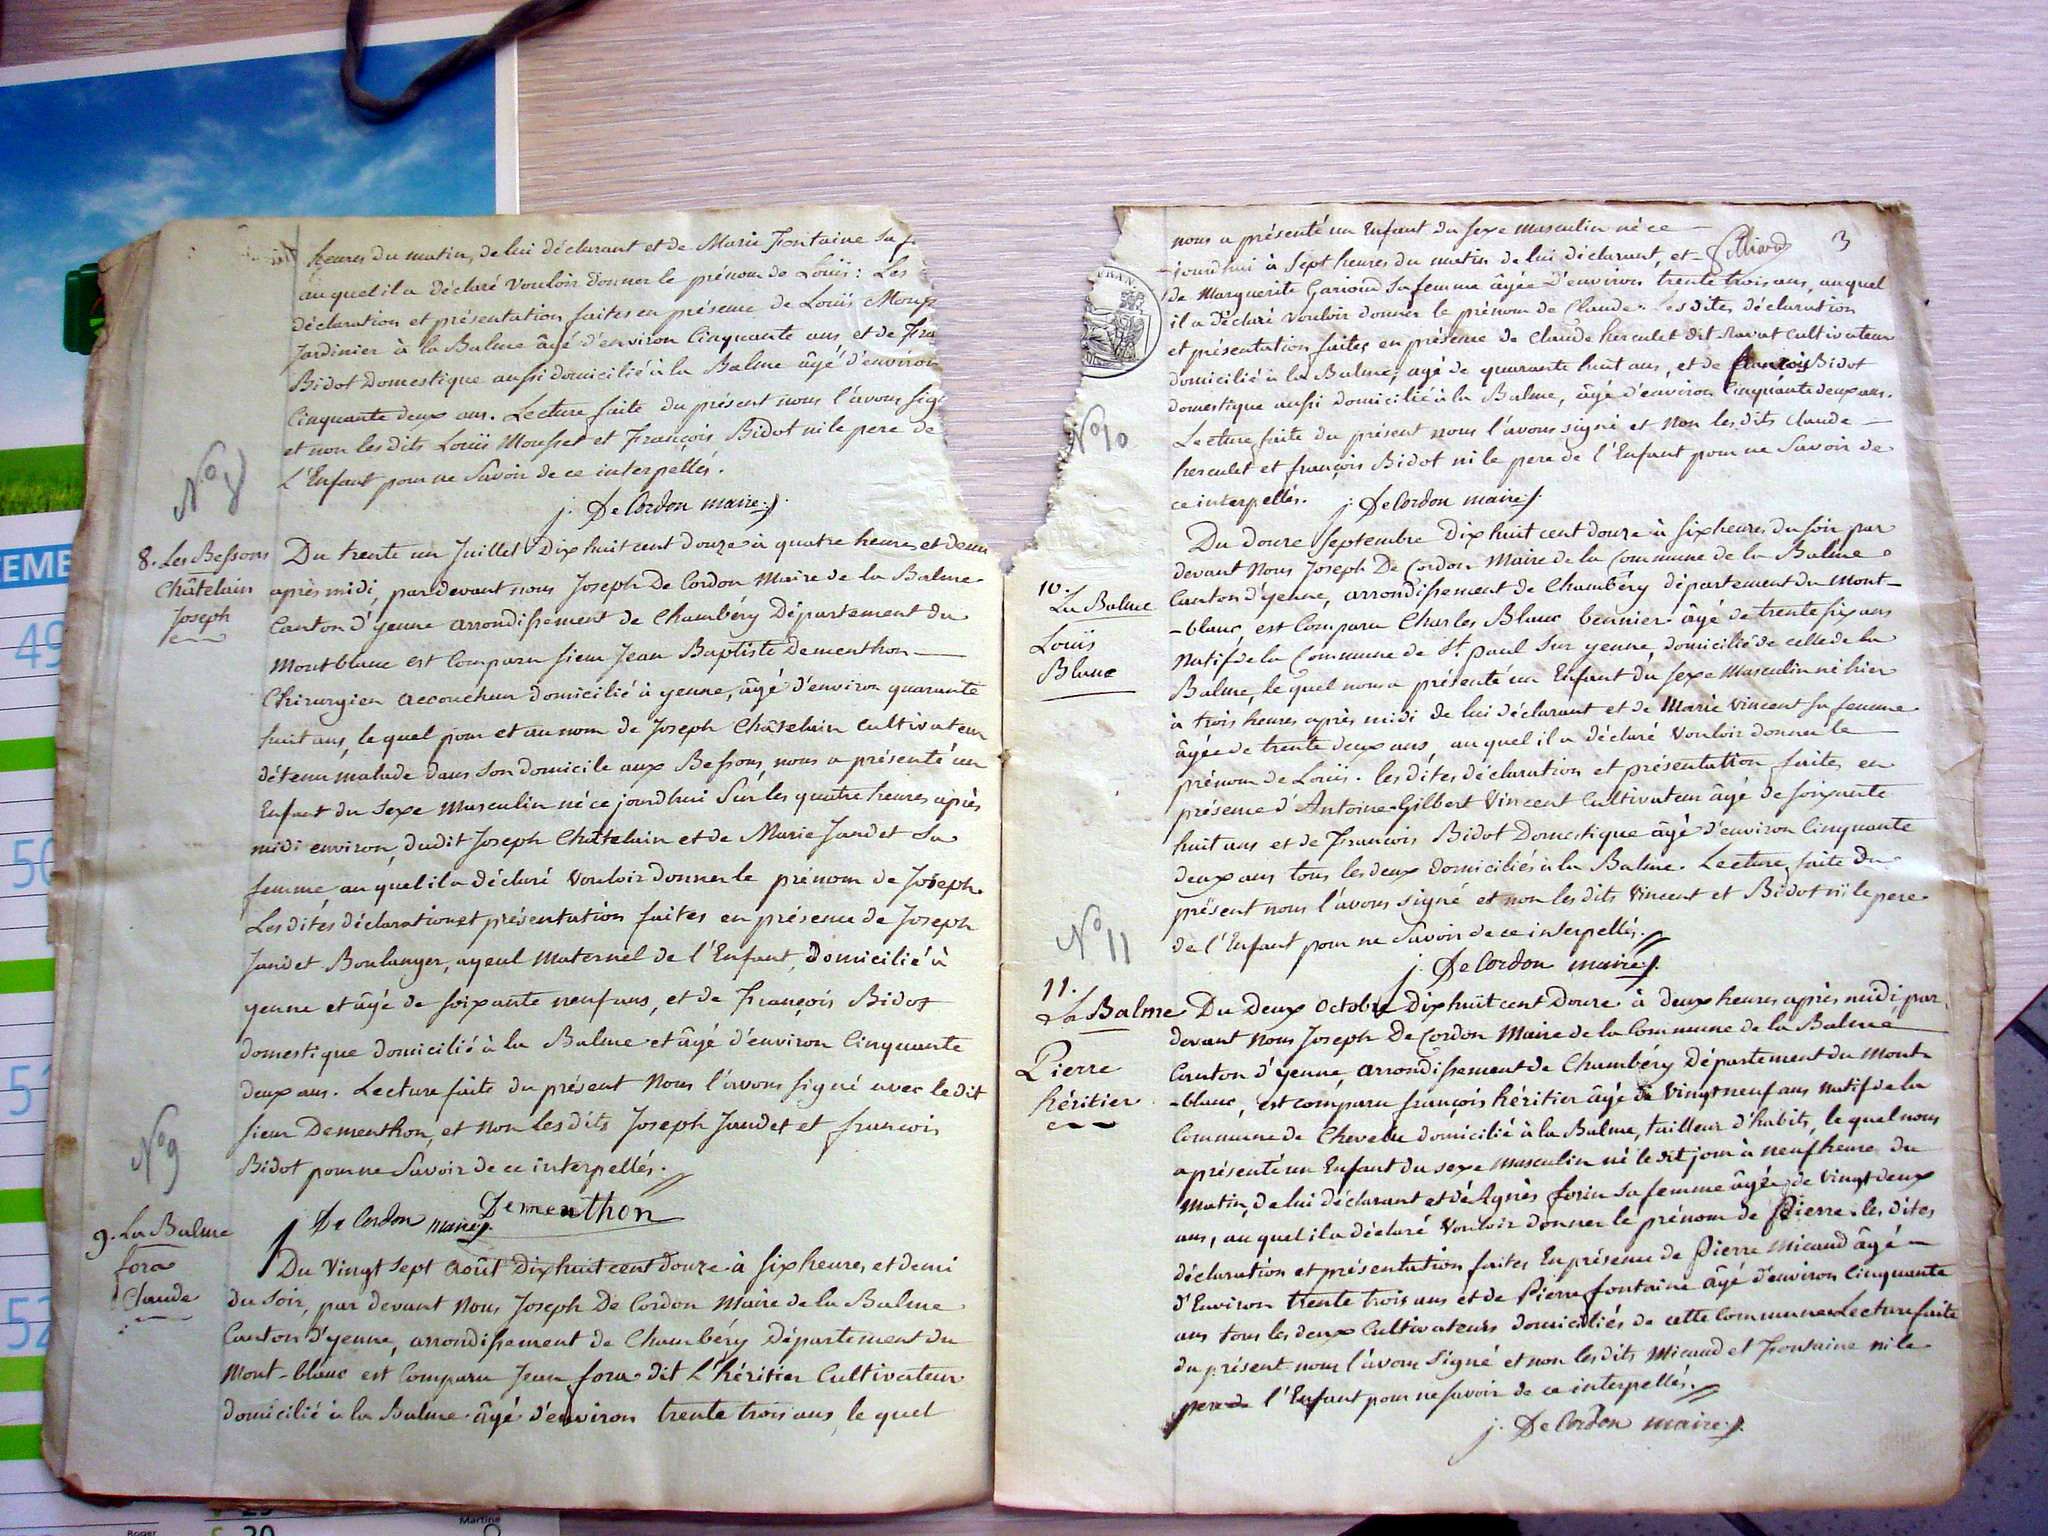 heures du matin, de lui déclarant et de Marie Fontaine sa f
auquel il a déclaré vouloir donner le prénom de Louïs: Les
déclaration et présentation faites en présence de Louïs Mouf
Jardinier à la Balme âgé d'environ Cinquante ans et de Fra
Bidot Domestique aussi domicilié à la Balme âgé d'environ
Cinquante deux ans. Lecture faite du présent nous l'avons sig
et non les dits Louïs Mousset et François Bidot ni le pere de
L'Enfant pour ne savoir de ce interpellés.
j. De Cordon maire
N° 8
8. Les Bessons
Châtelain
Joseph
Du trente un Juillet Dix huit cent douze à quatre heures et demi
après midi, par devant nous Joseph De Cordon Maire de la Balme
Canton d'yenne arrondissement de Chambéry Département du
Montblanc est Comparu sieur Jean Baptiste Dementhon
Chirurgien accoucheur domicilié à yenne, âgé d'environ quarante
huit ans, le quel pour et au nom de Joseph Châtelain Cultivateur
détenu malade dans son domicile aux Bessons, nous a présenté un
Enfant du sexe Masculin né ce jourd'hui sur les quatre heures après
midi environ, dudit Joseph Châtelain et de Marie Jandet sa
femme, auquel il a déclaré vouloir donner le prénom de Joseph.
Les dites déclaration et présentation faites en présence de Joseph
Jandet Boulanger, ayeul Maternel de l'Enfant, Domicilié à
yenne et âgé de soixante neuf ans, et de François Bidot
domestique domicilié à la Balme et âgé d'environ Cinquante
deux ans. Lecture faite du présent Nous l'avons signé avec le dit
sieur Dementhon, et non les dits Joseph Jandet et francois
Bidot pour ne savoir de ce interpellés.
De Cordon maire Dementhon
N° 9
9. La Balme
fora
Claude
Du Vingt sept Août Dix huit cent douze à six heures et demi
du Soir, par devant Nous Joseph De Cordon Maire de la Balme
Canton d'yenne, arrondissement de Chambéry Département du
Mont-blanc est Comparu Jean fora dit L'héritier Cultivateur
domicilié à la Balme âgé d'environ trente trois ans, le quel
3
nous a présenté un Enfant du sexe masculin né ce
jourdhui à Sept heures du matin de lui déclarant, et
de Marguerite Gariond sa femme âgée d'environ trente trois ans, auquel
il a déclaré vouloir donner le prénom de Claude. Les dites déclaration
et présentation faites en présence de Claude herculet dit Cultivateur
domicilié à la Balme, agé de quarante huit ans, et de françois Bidot
domestique aussi domicilié à la Balme, âgé d'environ Cinquante deux ans.
Lecture faite du présent nous l'avons signé et Non les dits Claude
herculet et françois Bidot ni le pere de l'Enfant pour ne Savoir de
ce interpellés. j. De Cordon maire
N° 10
10.
La Balme
Louïs
Blanc
Du douze Septembre Dix huit cent douze à six heures du soir par
devant Nous Joseph De Cordon Maire de la Commune de la Balme
Canton d'yenne, arrondissement de Chambéry département du Mont-
-blanc, est Comparu Charles Blanc bennier âgé de trente six ans
Natif de la Commune de St. paul sur yenne, domicilié de celle de la
Balme, le quel nous a présenté un Enfant du sexe Masculin né hier
à trois heures après midi de lui déclarant et de Marie Vincent sa femme
âgée de trente deux ans, auquel il a déclaré vouloir donner le
prénom de Louïs. les dites déclaration et présentation faites en
présence d'Antoine-Gilbert Vincent Cultivateur âgé de soixante
huit ans et de François Bidot Domestique âgé d'environ Cinquante
deux ans tous les deux domiciliés à la Balme. Lecture faite du
présent nous l'avons signé et non les dits Vincent et Bidot ni le pere
de l'Enfant pour ne Savoir de ce interpellés.
j. De Cordon maire
N° 11
11.
La Balme
Pierre
héritier
Du Deux Octobre Dix huit cent Douze à deux heures après midi, par
devant Nous Joseph De Cordon Maire de la Commune de la Balme
Canton d'yenne, arrondissement de Chambéry Département du Mont-
-blanc, est comparu françois héritier âgé de Vingt neuf ans natif de la
Commune de Chevelu domicilié à la Balme, tailleur d'habits, le quel nous
a présenté un Enfant du sexe masculin né le dit jour à neuf heures du
Matin, de lui déclarant et de Agnès forin sa femme âgée de vingt deux
ans, auquel il a déclaré Vouloir donner le prénom de Pierre. les dites
déclaration et présentation faites En présence de Pierre Micaud âgé
d'Environ trente trois ans et de Pierre fontaine âgé d'environ Cinquante
ans tous les deux Cultivateurs domiciliés de cette Commune Lecture faite
du présent nous l'avons signé et non les dits Micaud et Fontaine ni le
pere de l'Enfant pour ne savoir de ce interpellés.
j. De Cordon maire
EME
49
50
51
52
Roger
Martine